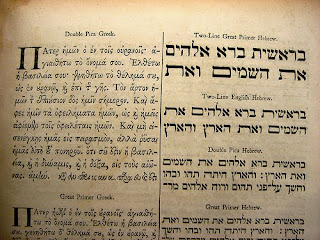 Double Pica Greek.
ΠΑτερ ἡμῶν ὁ ἐν τοῖς οὐρανοῖς· ἁ-
γιασθήτω τὸ ὄνομά σου. Ἐλθέτω
ἡ βασιλεία σου· γενηθήτω τὸ θέλημά σου,
ὡς ἐν οὐρανῷ, ϗ ἐπὶ τῆς γῆς. Τὸν ἄρτον ἡ-
μῶν τὸν ἐπιούσιον δὸς ἡμῖν σήμερον. Καὶ ἄ-
φες ἡμῖν τὰ ὀφειλήματα ἡμῶν, ὡς ϗ ἡμεῖς
ἀφίεμεν τοῖς ὀφειλέταις ἡμῶν. Καὶ μὴ
εἰσενέγκῃς ἡμᾶς εἰς πειρασμὸν, ἀλλὰ ῥῦσαι
ἡμᾶς ἀπὸ τοῦ πονηροῦ. ὅτι σοῦ ἐστιν ἡ βασι-
λεία, ϗ ἡ δύναμις, ϗ ἡ δόξα, εἰς τοὺς αἰῶ-
νας. ἀμήν.
Great Primer Greek.
ΠΑτερ ἡμῶν ὁ ἐν τοῖς οὐρανοῖς· ἁγιασθή-
τω τὸ ὄνομά σου. Ἐλθέτω ἡ βασιλεία
Two-Line Great Primer Hebrew.
בראשית ברא אלהים
את השמים ואת
Two-Line English Hebrew.
בראשית ברא אלהים את
השמים ואת הארץ והארץ
Double Pica Hebrew.
בראשית ברא אלהים את השמים
ואת הארץ: והארץ היתה תהו ובהו
וחשך על־פני תהום ורוח אלהים מרח
Great Primer Hebrew.
בראשית ברא אלהים את השמים ואת
הארץ: והארץ היתה תהו ובהו